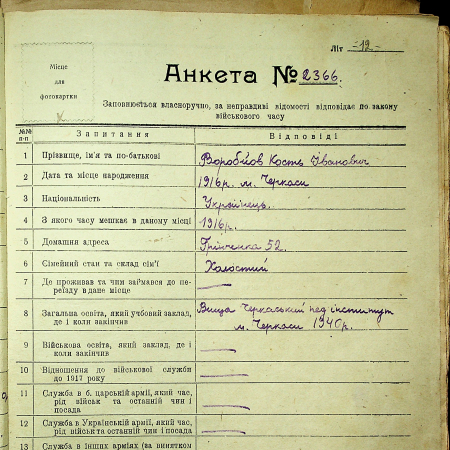 Літ -12-
Місце
для
фотокартки
Анкета № 2366.
Заповнюється власноручно, за неправдиві відомості відповідає по закону
військового часу
№№ п-п Запитання Відповіді
1 Прізвище, ім'я та по-батькові Воробйов Кость Іванович
2 Дата та місце народження 1916 р. м. Черкаси
3 Національність Українець.
4 З якого часу мешкає в даному місці 1916 р.
5 Домашня адреса Грінченка 52.
6 Сімейний стан та склад сім'ї Холостий
7 Де проживав та чим займався до пе-
реїзду в дане місце
8 Загальна освіта, який учбовий заклад, Вища Черкаський пед інститут
де і коли закінчив м. Черкаси 1940 р.
9 Військова освіта, який заклад, де і
коли закінчив
10 Відношення до військової служби
до 1917 року
11 Служба в б. царській армії, який час,
рід військ та останній чин і
посада
12 Служба в Українській армії, який час,
рід військ та останній чин і посада
13 Служба в інших арміях (за винятком